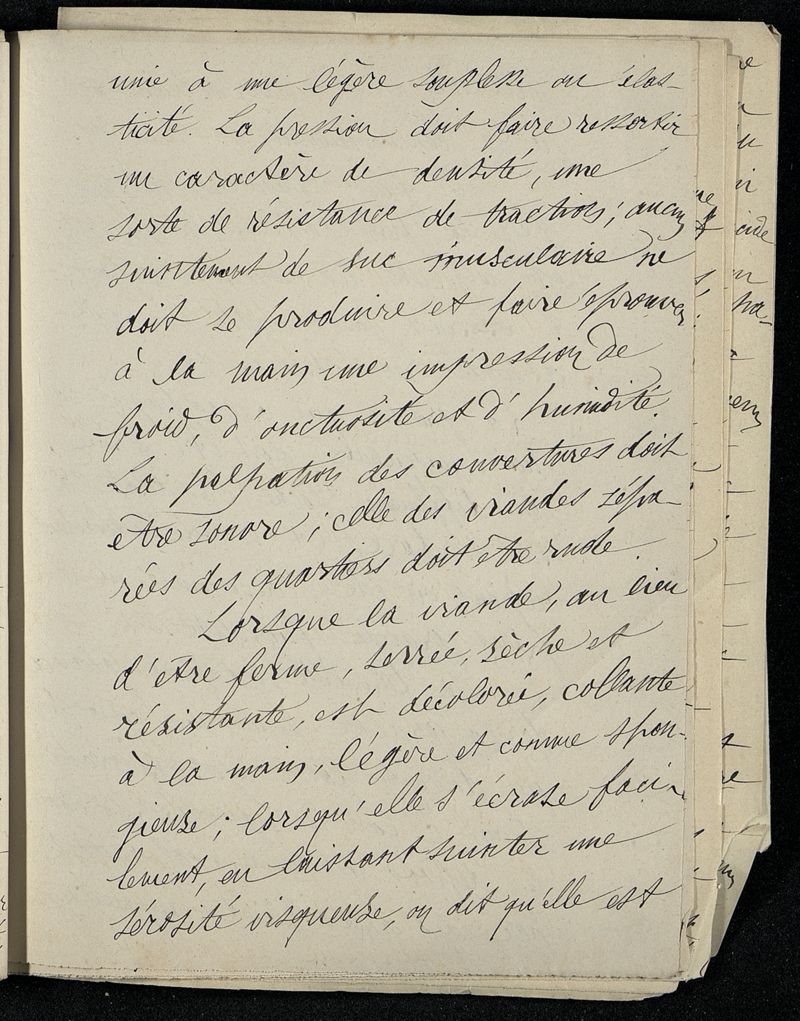 unie à une légère souplesse ou élas-
ticité. La pression doit faire ressortir
un caractère de densité, une
sorte de résistance de traction; aucun
suintement de suc musculaire ne
doit se produire et faire éprouver
à la main une impression de
froid, d'onctuosité et d'humidité.
La palpation des couvertures doit
être sonore; celle des viandes sépa-
rées des quartiers doit être rude
Lorsque la viande, au lieu
d'être ferme, serrée, sèche et
résistante, est décolorée, collante
à la main, légère et comme spon-
gieuse; lorsqu'elle s'écrase faci-
lement, en laissant suinter une
sérosité visqueuse, on dit qu'elle est